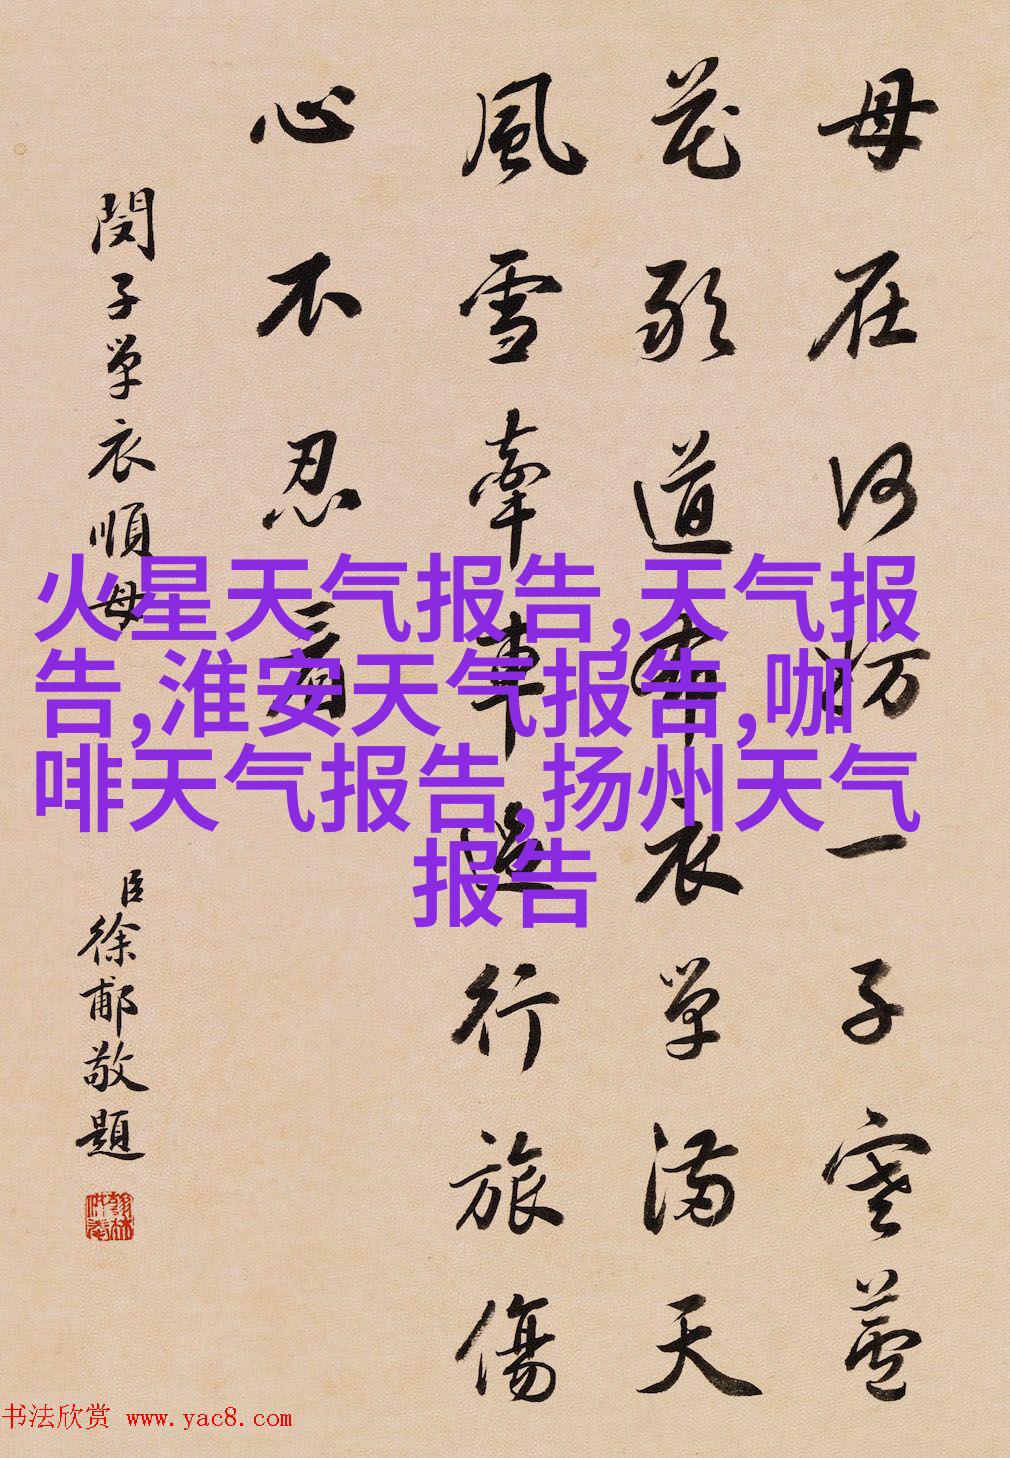 母在何妨一子寒蘆
花敢道本衣單滿天
風雪牽車迅行旅傷
心不忍看
閔子單衣順母
臣徐郙敬題
火星天气报告,天气报
告,淮安天气报告,咖
啡天气报告,扬州天气
报告
书法欣赏 www.yac8.com